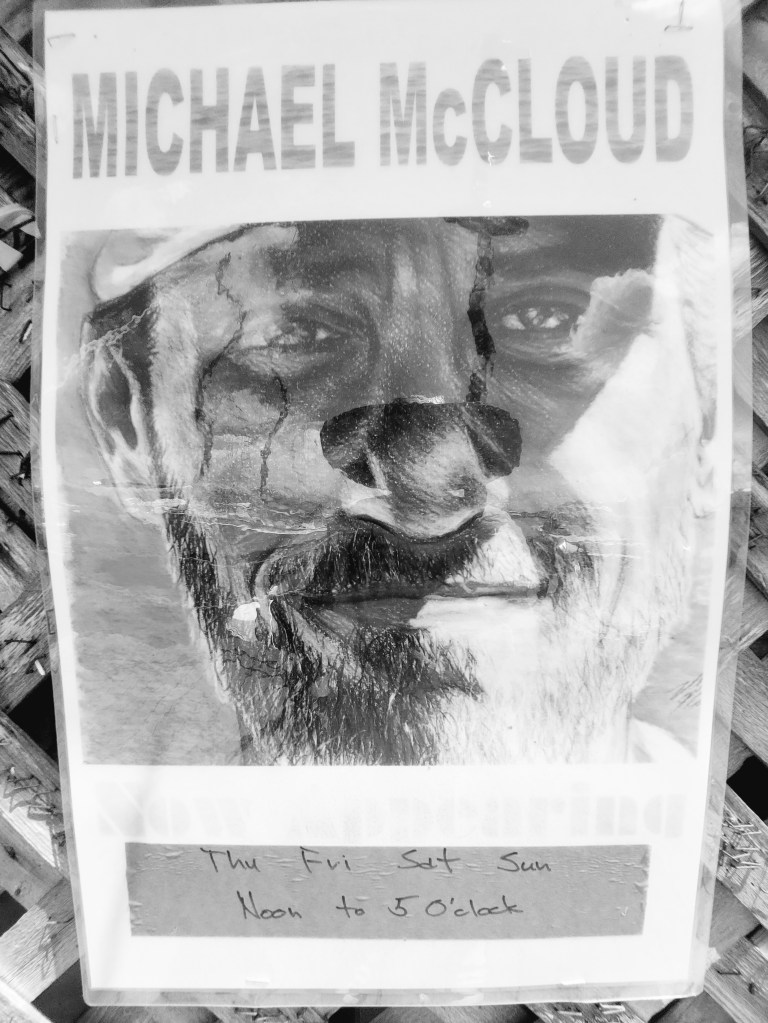 MICHAEL McCLOUD
Now Appearing
Thu Fri Sat Sun
Noon to 5 O'clock